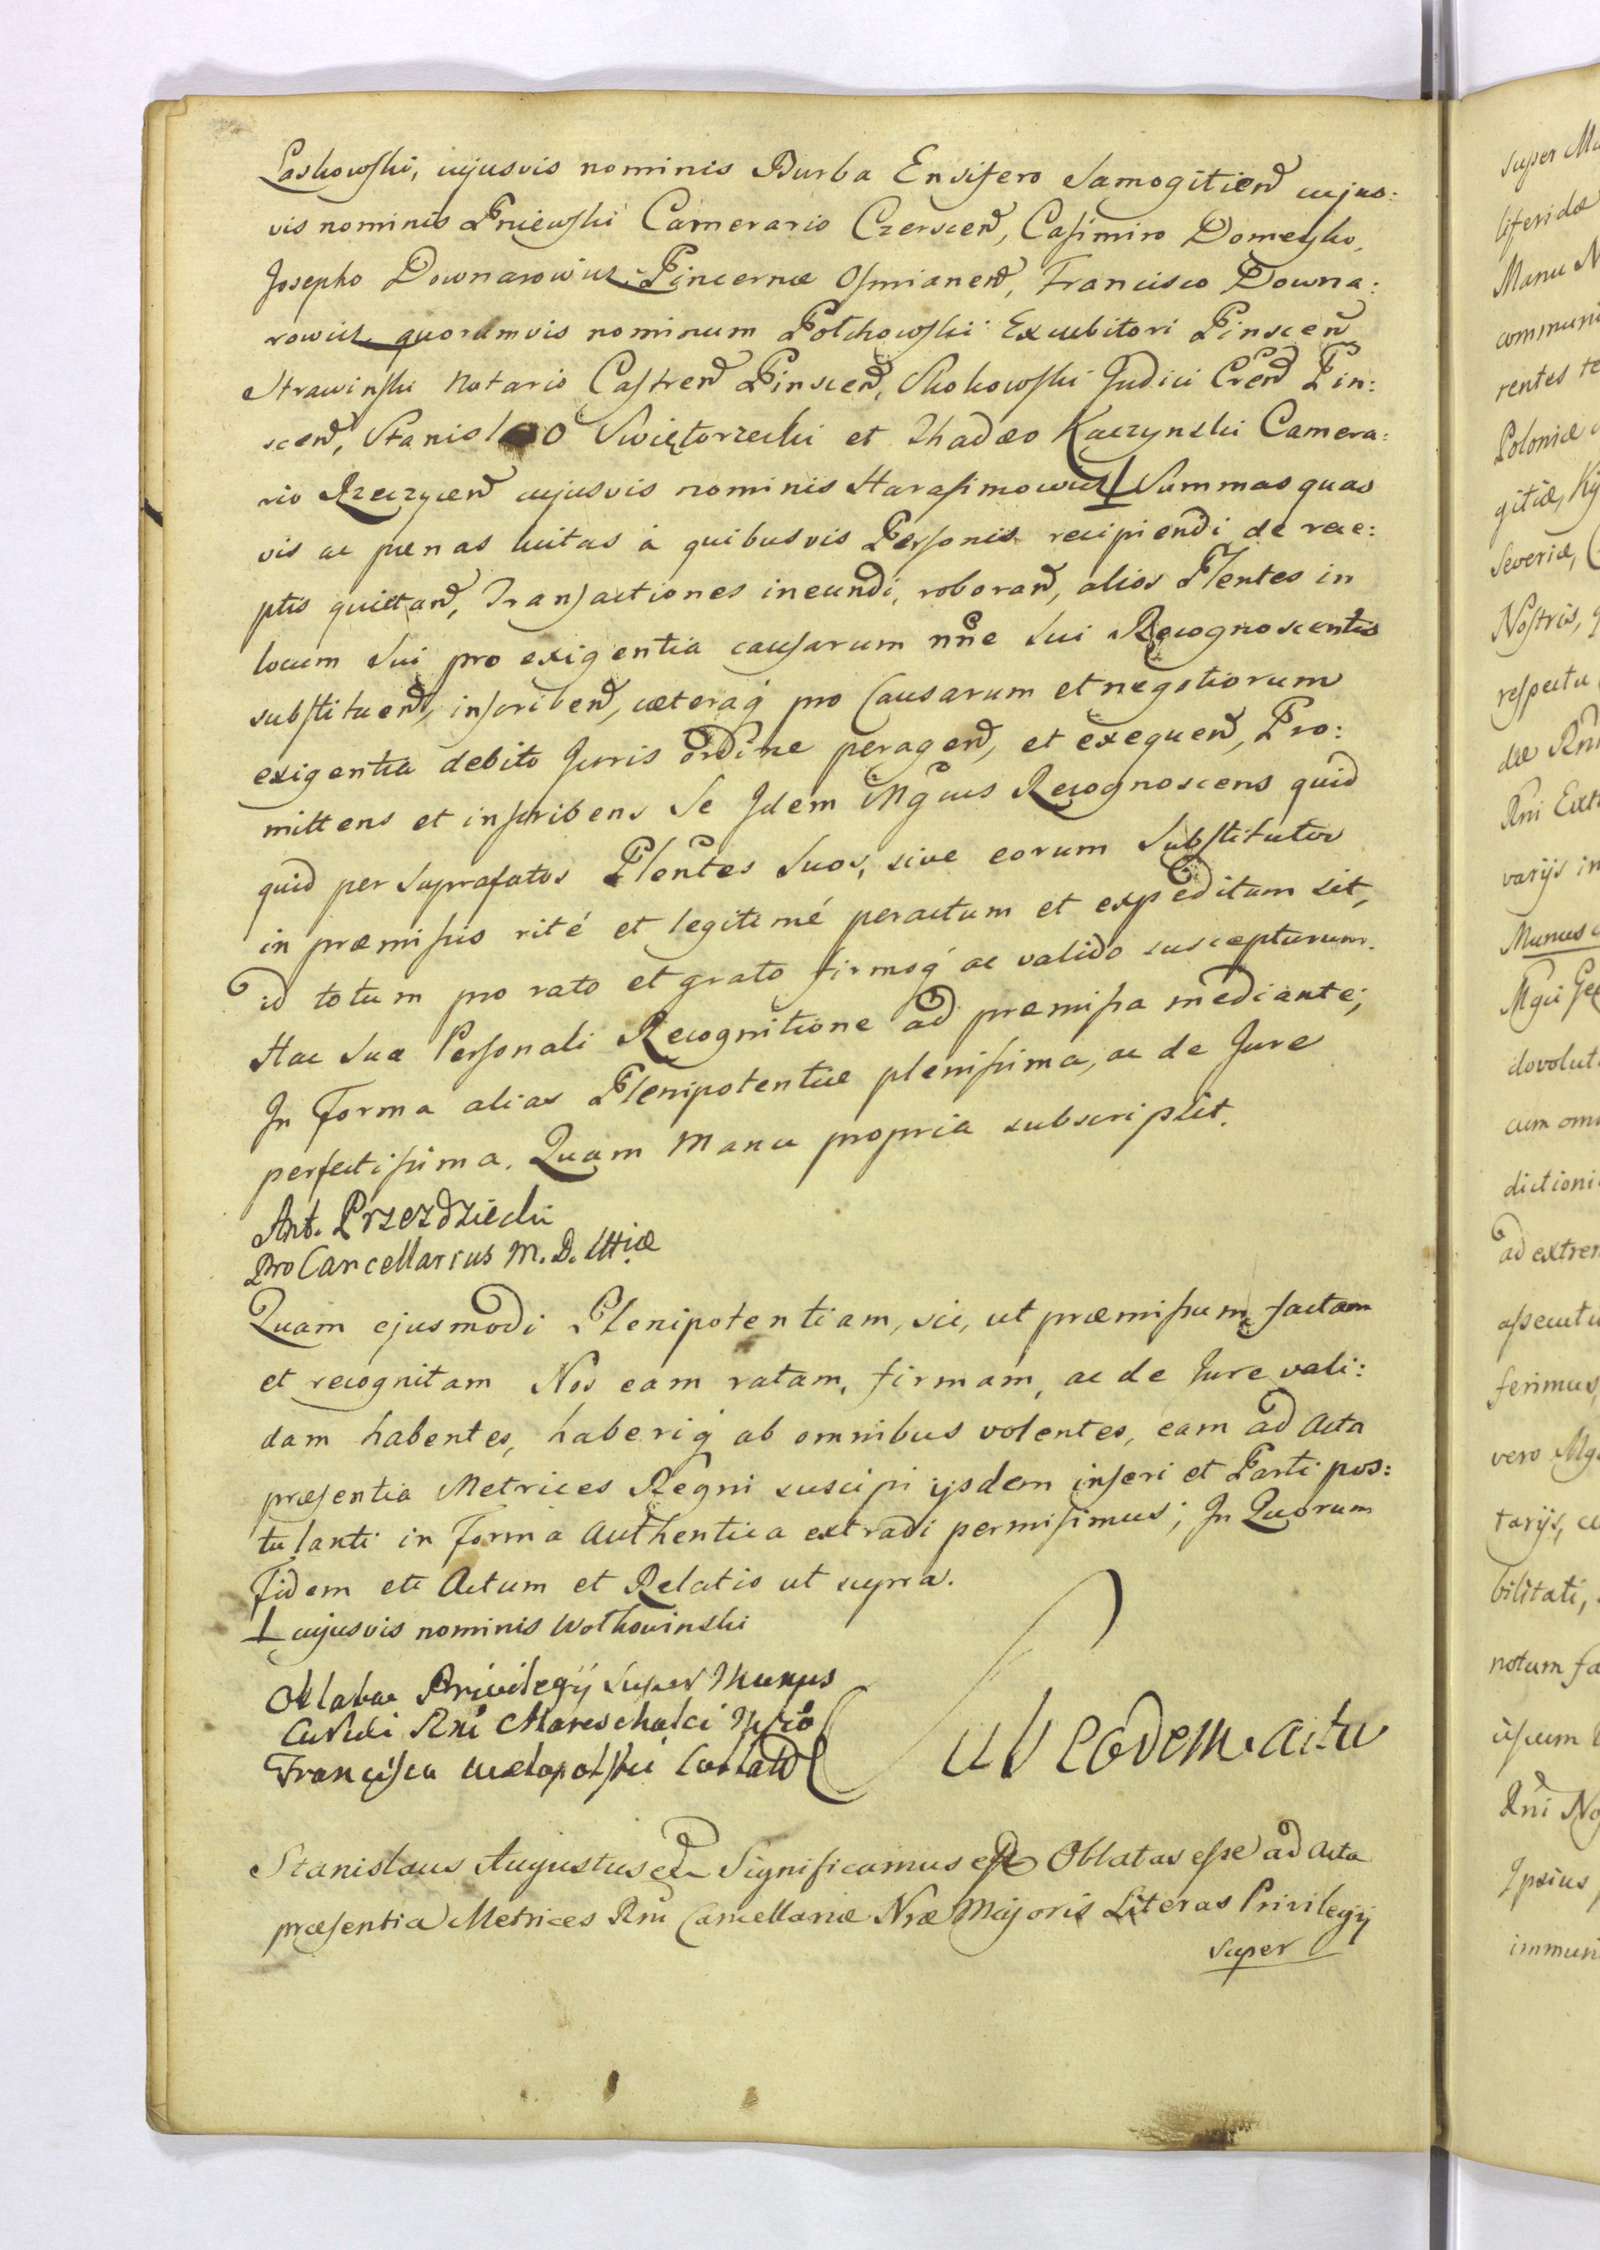 Laskowski, cujusvis nominis Burba Ensifero Samogitień cujus:
vis nominis Pniewski Camerario Czersceń, Casimiro Domeyko,
Josepho Downarowicz Pincernæ Osmianeń, Francisco Downa:
rowicz quorumvis nominum Połchowski Excubitori Pinsceń
Strawinski Notario Castreń Pinsceń, Skokowski Judici Creń Pin:
sceń, Stanislao Swiętorzecki et Thadæo Kaczynski Camera:
rio Rzeczyceń cujusvis nominis Harasimowicz Summas quas
vis ac pænas luitas á quibusvis Personis recipiendi de rece:
ptis quiettań, Transactiones ineundi, roborań, alios Plentes in
locum Sui pro exigentia causarum nñe Sui Recognoscentis
substitueń, inscribeń, cæteraq́ pro Causarum et negotiorum
exigentia debito Juris ordine perageń, et exequeń, Pro:
mittens et inscribens Se Idem Mgcus Recognoscens quid
quid per Suprafatos Plentes Suos, sive eorum Substitutos
in præmissis rité et legitimé peractum et expeditum sit,
id totum pro rato et grato firmoq́ ac valido suscepturum.
Hac Sua Personali Recognitione ad præmissa mediante;
In Forma alias Plenipotentiæ plenissima, ac de Jure
perfectissima. Quam Manu propria subscripsit.
Ant. Przezdziecki
Pro Cancellarius M. D. Littiæ
Quam ejusmodi Plenipotentiam, sic, ut præmissum factam
et recognitam Nos eam ratam, firmam, ac de Jure vali:
dam habentes, haberiq́ ab omnibus volentes, eam ad Acta
præsentia Metrices Regni suscipi ijsdem inseri et Parti pos:
tulanti in Forma Authentica extradi permisimus; In Quorum
Fidem etc Actum et Relatio ut supra.
cujusvis nominis Wołkowinski
Oblatæ Privilegij super Munus
Francisco Wielopolski
Sub eodem actu
Stanislaus Augustus etc Significamus etc Oblatas esse ad Acta
præsentia Metrices Rni Cancellariæ Nræ Majoris Literas Privilegij
super
super
Manu
Poloniæ
gitiæ,
Severiæ,
Nostris,
respectu
varijs in
Munus
cum
ad extrem
vero
tarijs,
bilitati,
notum fa
Rni
Ipsius
immun